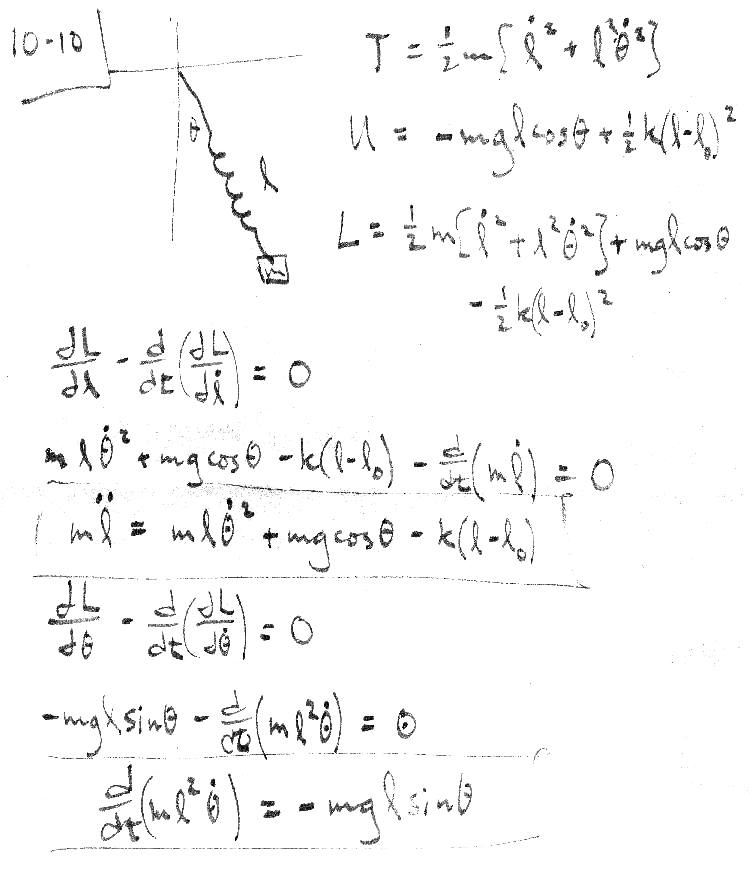 10-10
T = ½m{l̇² + l²θ̇²}
θ
U = -mgl cosθ + ½k(l-l₀)²
l
L = ½m{l̇² + l²θ̇²} + mgl cosθ
m
- ½k(l-l₀)²
dL/dl - d/dt(dL/dl̇) = 0
mlθ̇² + mg cosθ - k(l-l₀) - d/dt(ml̇) = 0
ml̈ = mlθ̇² + mg cosθ - k(l-l₀)
dL/dθ - d/dt(dL/dθ̇) = 0
-mgl sinθ - d/dt(ml²θ̇) = 0
d/dt(ml²θ̇) = -mgl sinθ